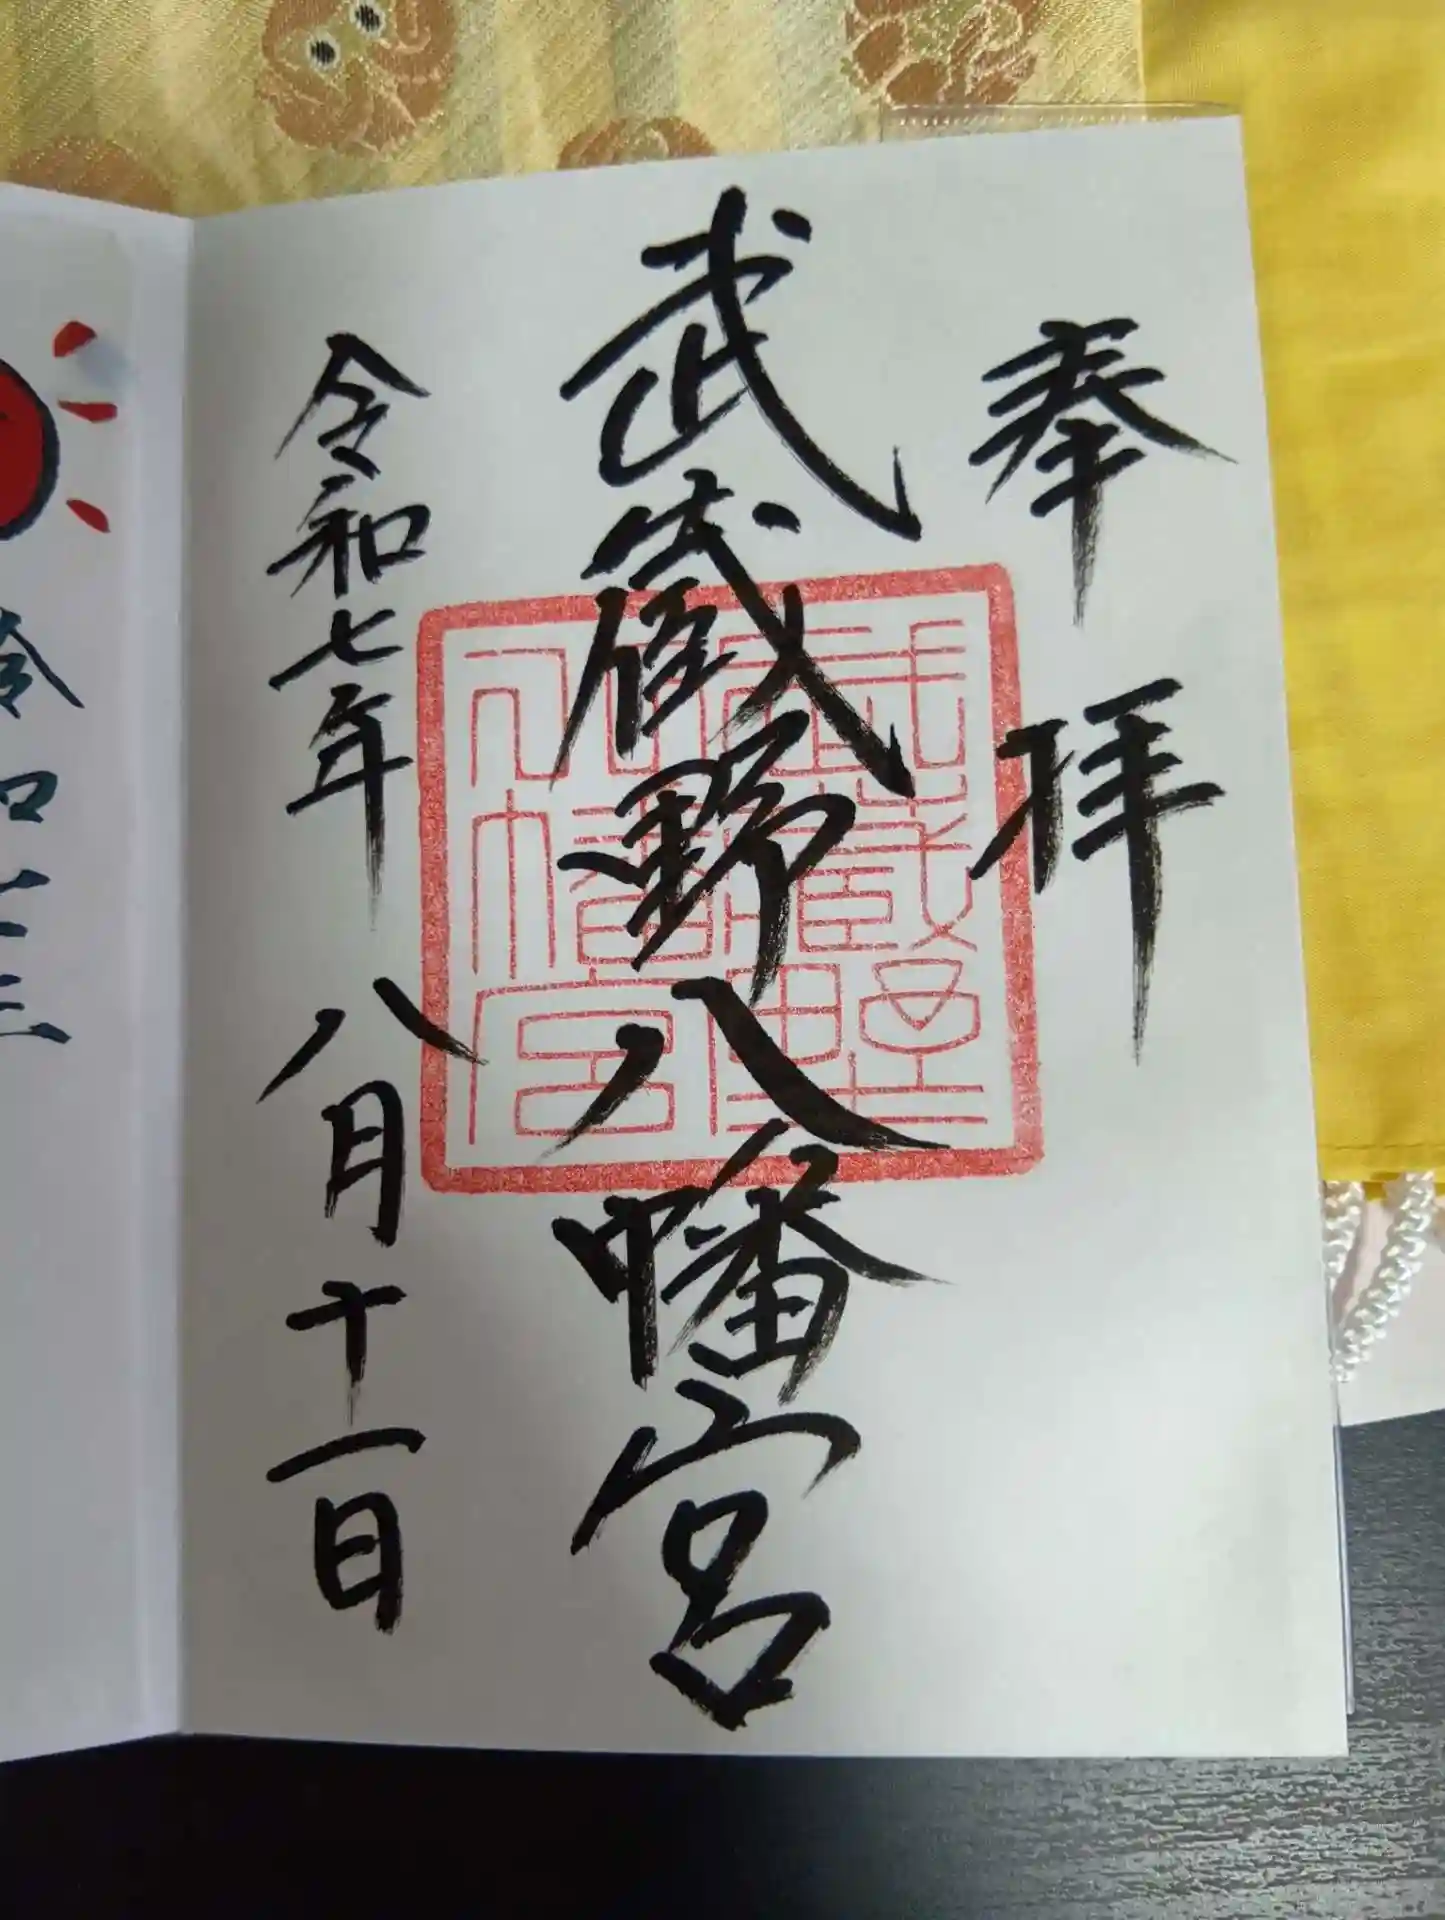 奉拝
武蔵野八幡宮
令和七年八月十一日
武蔵野
八幡宮
令和七
三